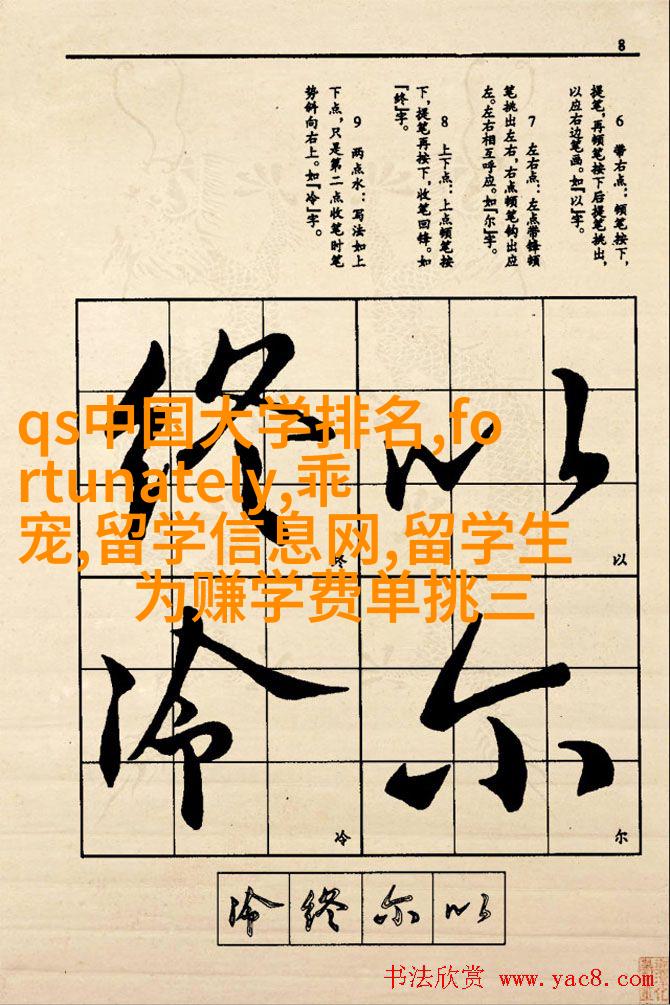 8
6 带右点：顿笔按下，
提笔，再顿笔按下后提笔挑出，
以应右边笔画。如『以』字。
7 左右点：左点带锋顿
笔挑出左右，右点顿笔钩出应
左。左右相互呼应。如『尔』字。
8 上下点：上点顿笔按
下，提笔再按下，收笔回锋。如
『终』字。
9 两点水：写法如上
下点，只是第二点收笔时笔
势斜向右上。如『冷』字。
qs中国大学排名,fo
rtunately,乖
宠,留学信息网,留学生
为赚学费单挑三
终 以
终 以
冷 尔
冷 尔
冷 终 尔 以
书法欣赏 www.yac8.com